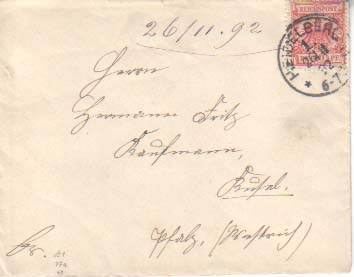 26/11.92
REICHSPOST
HEIDELBERG
6-7
Herrn
Hermann Fritz
Kaufmann,
Kusel.
Pfalz, (Westrich)
fr.